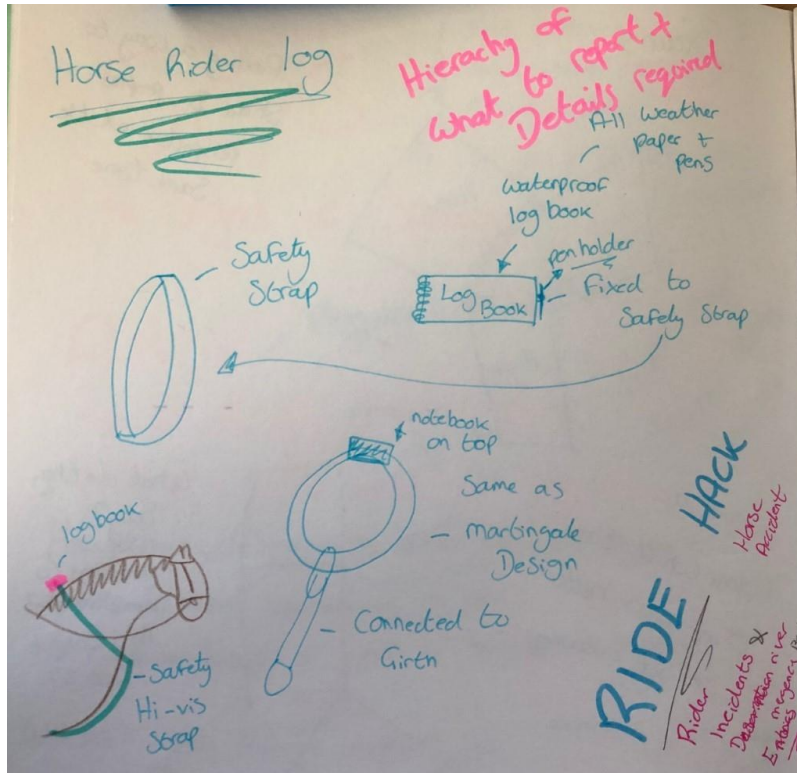 Horse Rider log
Hierachy of
what to report +
Details required
All weather
paper +
pens
waterproof
log book
pen holder
Safety
Strap
Log
Book
Fixed to
Safety Strap
notebook
on top
Same as
martingale
Design
logbook
Connected to
Girth
Safety
Hi-vis
Strap
RIDE HACK
Horse
Accident
Rider
Incidents &
river